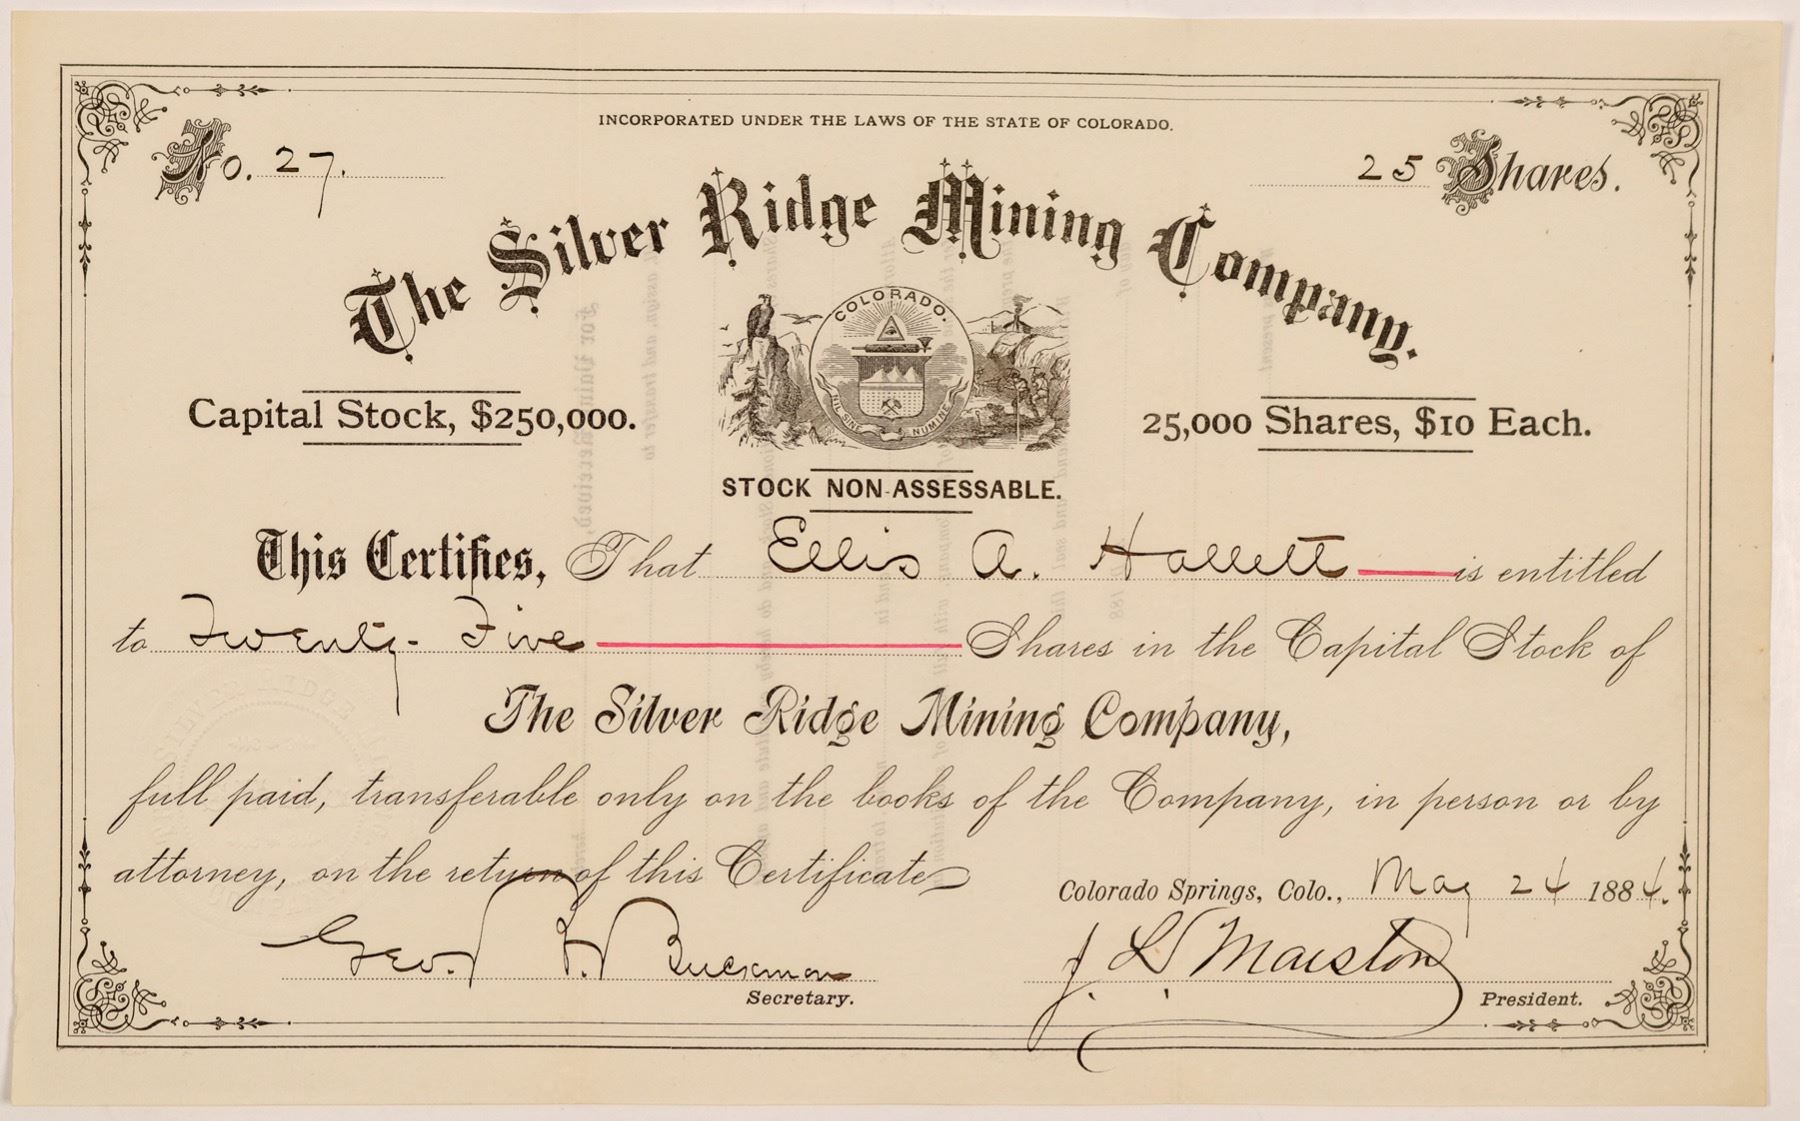 INCORPORATED UNDER THE LAWS OF THE STATE OF COLORADO.
No. 27.
25 Shares.
The Silver Ridge Mining Company.
COLORADO.
NIL SINE NUMINE
Capital Stock, $250,000.
25,000 Shares, $10 Each.
STOCK NON-ASSESSABLE.
This Certifies, That Ellis A. Hallett is entitled
to Twenty-Five Shares in the Capital Stock of
The Silver Ridge Mining Company,
full paid, transferable only on the books of the Company, in person or by
attorney, on the return of this Certificate
Colorado Springs, Colo., May 24 1884.
Geo. H. Buckman
Secretary.
J. L. Marston
President.